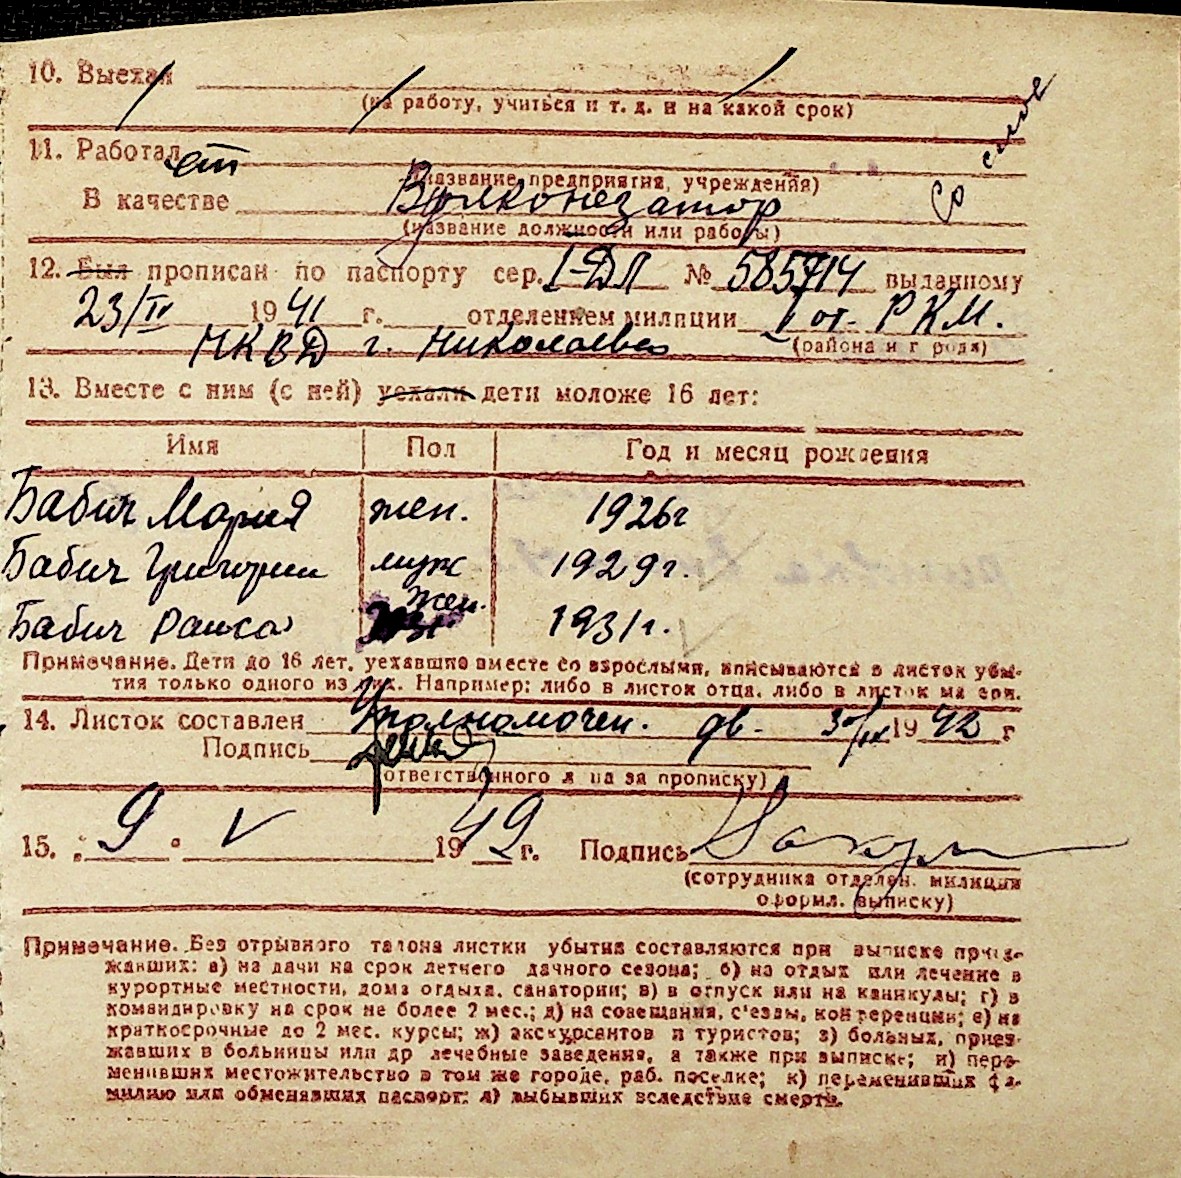 10. Выехал
(на работу, учиться и т. д. и на какой срок)
11. Работал ет
(название предприятия, учреждения)
со слов
В качестве Вулконезатор
(название должности или работы)
12. Был прописан по паспорту сер. I-ДЛ № 585714 выданному
23/IV 1941 г. отделением милиции I от. РКМ.
НКВД г. Николаева
(района и города)
13. Вместе с ним (с ней) уехали дети моложе 16 лет:
Имя Пол Год и месяц рождения
Бабич Мария жен. 1926г
Бабич Григории муж 1929г.
Бабич Раиса жен. 1931г.
Примечание. Дети до 16 лет, уехавшие вместе со взрослыми, вписываются в листок убы-
тия только одного из них. Например: либо в листок отца, либо в листок матери.
14. Листок составлен Уполномочен. дв. 1942 г
Подпись
(ответственного лица за прописку)
15. „9" V 1949 г. Подпись
(сотрудника отделен. милиции
оформл. выписку)
Примечание. Без отрывного талона листки убытия составляются при выписке приез-
жавших: а) на дачи на срок летнего дачного сезона; б) на отдых или лечение в
курортные местности, дома отдыха, санатории; в) в отпуск или на каникулы; г) в
командировку на срок не более 2 мес.; д) на совещания, с'езды, конференции; е) на
краткосрочные до 2 мес. курсы; ж) экскурсантов и туристов; з) больных, приез-
жавших в больницы или др лечебные заведения, а также при выписке; и) пере-
менивших местожительство в том же городе, раб. поселке; к) переменивших фа-
милию или обменявших паспорт; л) выбывших вследствие смерти.